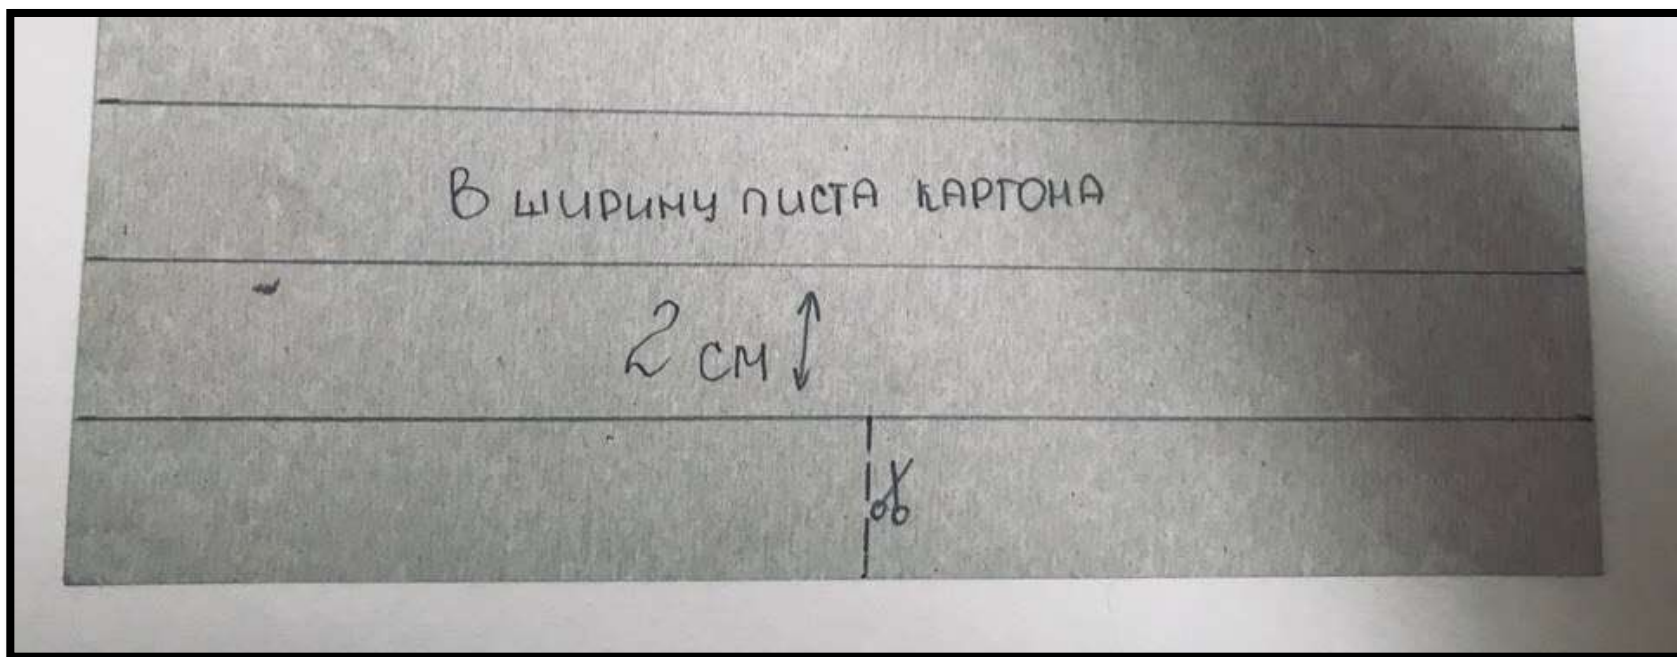 В ШИРИНУ ЛИСТА КАРТОНА
2 см